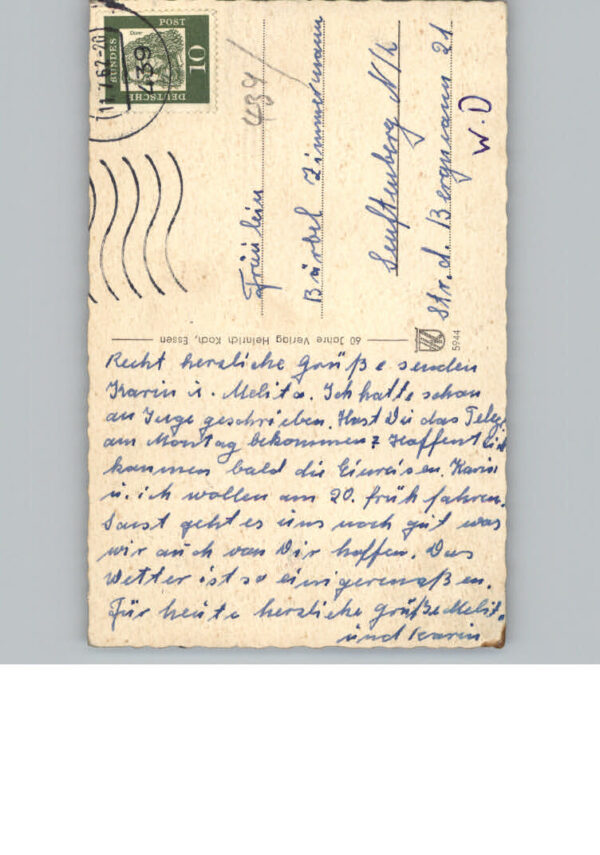 DEUTSCHE
BUNDES
POST
10
Dürer
439
11.7.62-20
439/
Fräulein
Bärbel Zimmermann
Senftenberg N/L
Str. d. Bergmann 21
W.D
60 Jahre Verlag Heinrich Koch, Essen
5944
Recht herzliche Grüße senden
Karin u. Melita. Ich hatte schon
an Inge geschrieben. Hast Du das Teleg.
am Montag bekommen? Hoffentlich
kommen bald die Einreisen. Karin
u. ich wollen am 20. früh fahren.
Sonst geht es uns noch gut was
wir auch von Dir hoffen. Das
Wetter ist so einigermaßen.
Für heute herzliche Grüße Melit.
und Karin